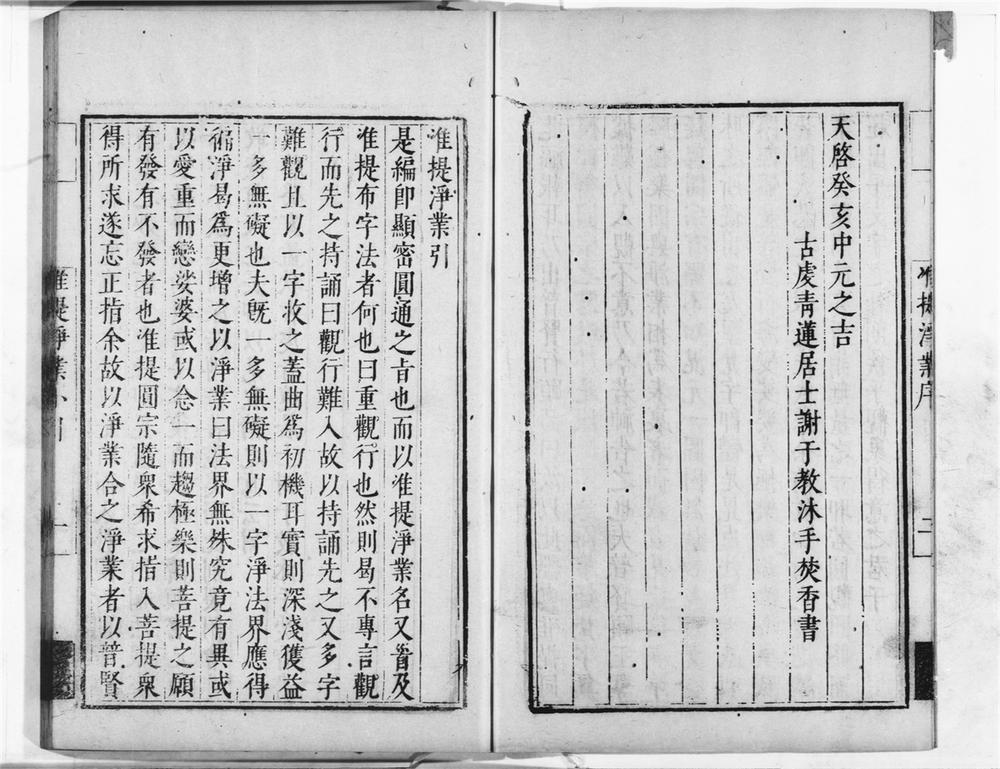 天啓癸亥中元之吉
古虞青蓮居士謝于教沐手焚香書
准提淨業序
二
准提淨業引
是編卽顯密圓通之旨也而以准提淨業名又首及
准提布字法者何也曰重觀行也然則曷不專言觀
行而先之持誦曰觀行難入故以持誦先之又多字
難觀且以一字攷之蓋曲爲初機耳實則深淺獲益
多無礙也夫旣一多無礙則以一字淨法界應得
徧淨曷爲更增之以淨業曰法界無殊究竟有異或
以愛重而戀娑婆或以念一而趨極樂則菩提之願
有發有不發者也准提圓宗隨衆希求指入菩提衆
得所求遂忘正指余故以淨業合之淨業者以普賢
准提淨業
一